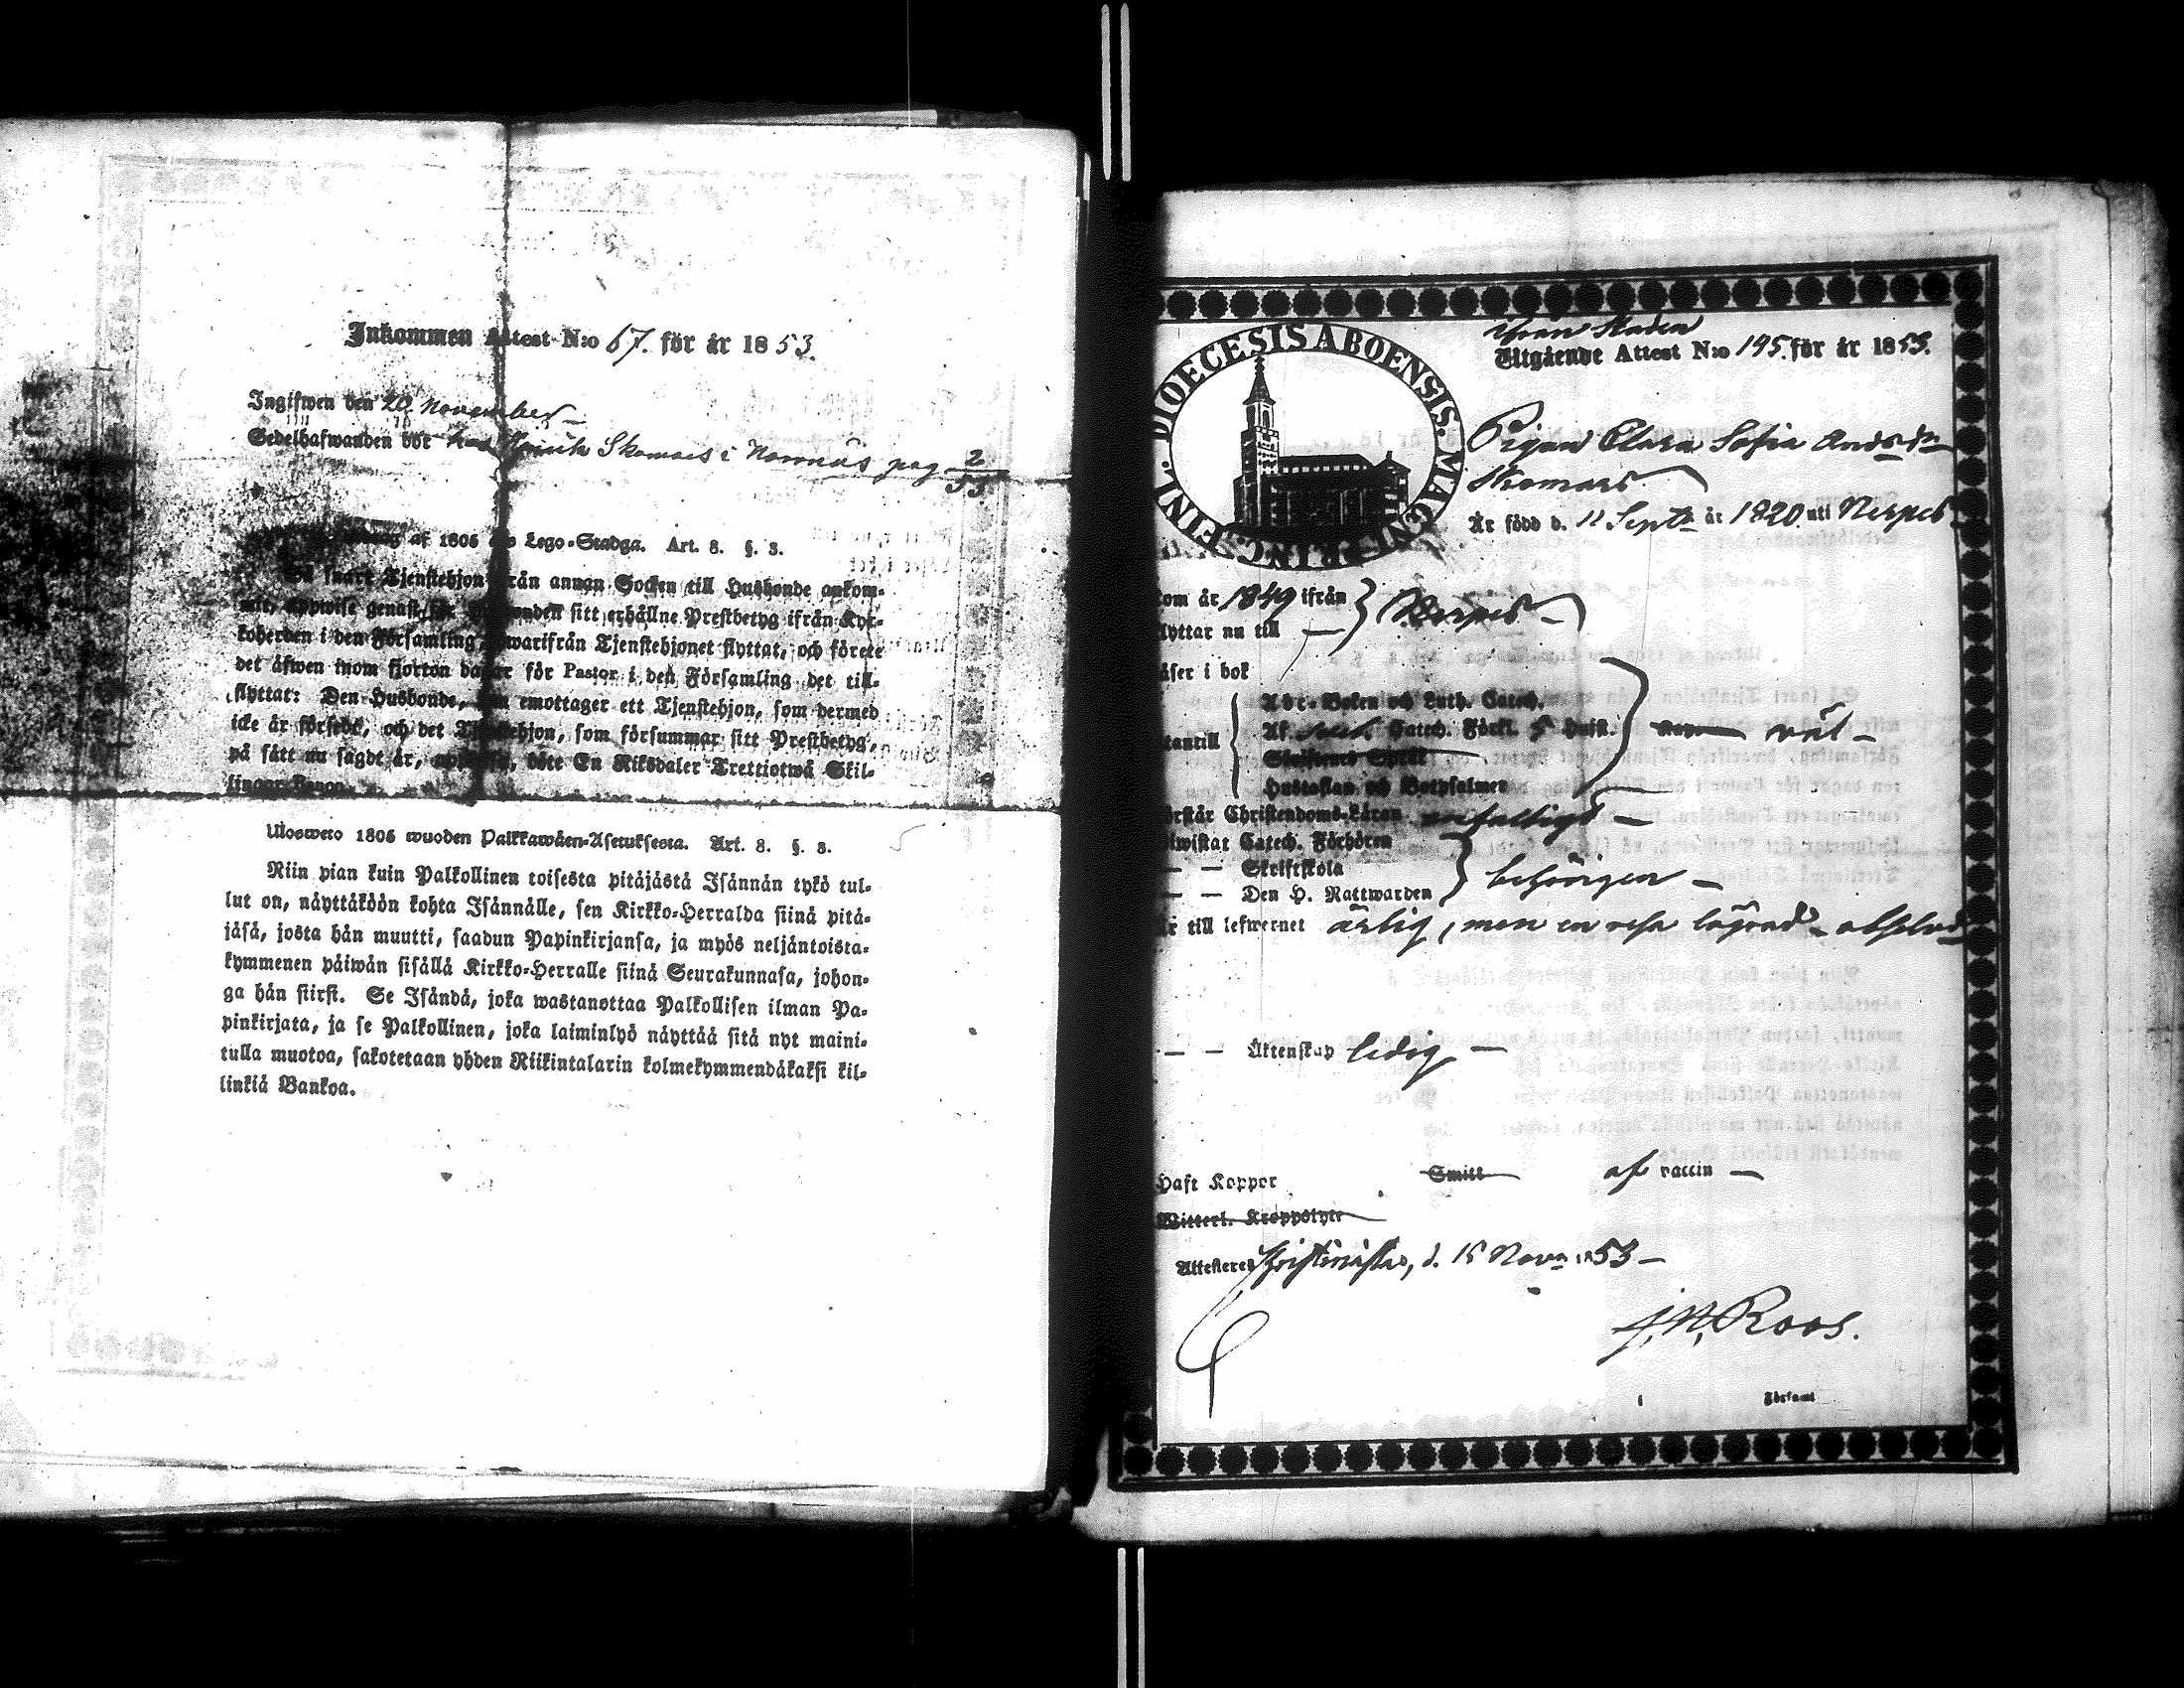 Inkommen Attest N:o 67. för år 1853.
Ingifwen den 20 November
Sedelhafwanden bor hos Henrik Skomars i Norrnäs pag 2/53
af 1806 års Lego-Stadga. Art. 8. §. 3.
Så snart Tjenstehjon från annan Socken till Husbonde ankom-
mit, uppwise genast för Husbonden sitt erhållne Prestbetyg ifrån Kyr-
koherden i den Församling, hwarifrån Tjenstehjonet flyttat, och förete
det äfwen inom fjorton dagar för Pastor i den Församling det till-
flyttat: Den Husbonde, som emottager ett Tjenstehjon, som dermed
icke är försedt, och det Tjenstehjon, som försummar sitt Prestbetyg,
på sätt nu sagdt är, uppwisa, böte En Riksdaler Trettiotwå Skil-
lingar Banco.
Ulosweto 1806 wuoden Palkkawäen-Asetuksesta. Art. 8. §. 3.
Niin pian kuin Palkollinen toisesta pitäjästä Isännän tykö tul-
lut on, näyttäköön kohta Isännälle, sen Kirkko-Herralda siinä pitä-
jäsä, josta hän muutti, saadun Papinkirjansa, ja myös neljäntoista-
kymmenen päiwän sisällä Kirkko-Herralle siinä Seurakunnasa, johon-
ga hän siirsi. Se Isändä, joka wastanottaa Palkollisen ilman Pa-
pinkirjata, ja se Palkollinen, joka laiminlyö näyttää sitä nyt maini-
tulla muotoa, sakotetaan yhden Riikintalarin kolmekymmendäkaksi kil-
linkiä Bankoa.
DIOECESIS ABOENSIS. MAGNI PRINC. FINL.
ifrån Staden
Utgående Attest N:o 195. för år 1853.
Pigan Clara Sofia Andsdr
Skomars
Är född d. 11 Septr år 1820 uti Nerpes
om år 1849 ifrån } Nerpes
lyttar nu till —
äser i bok
Abc-Boken och Luth. Catech.
tantill Af Catech. Förkl. 5 Hufst. väl —
Skriftenes Språk
Hustaflan och Botpsalmer
örstår Christendoms-Läran enfaldigt —
iwistat Catech. Förhören
— — Skriftskola } behörigen —
— — Den H. Nattwarden
r till lefwernet ärlig, men en resa lägrad - absolv
— — Äktenskap ledig —
Haft Koppor Smitt af vaccin —
Witterl. Kroppslyte
Attesteres Kristinestad, d. 15 Novr 1853 —
J. N. Roos.
i Församl